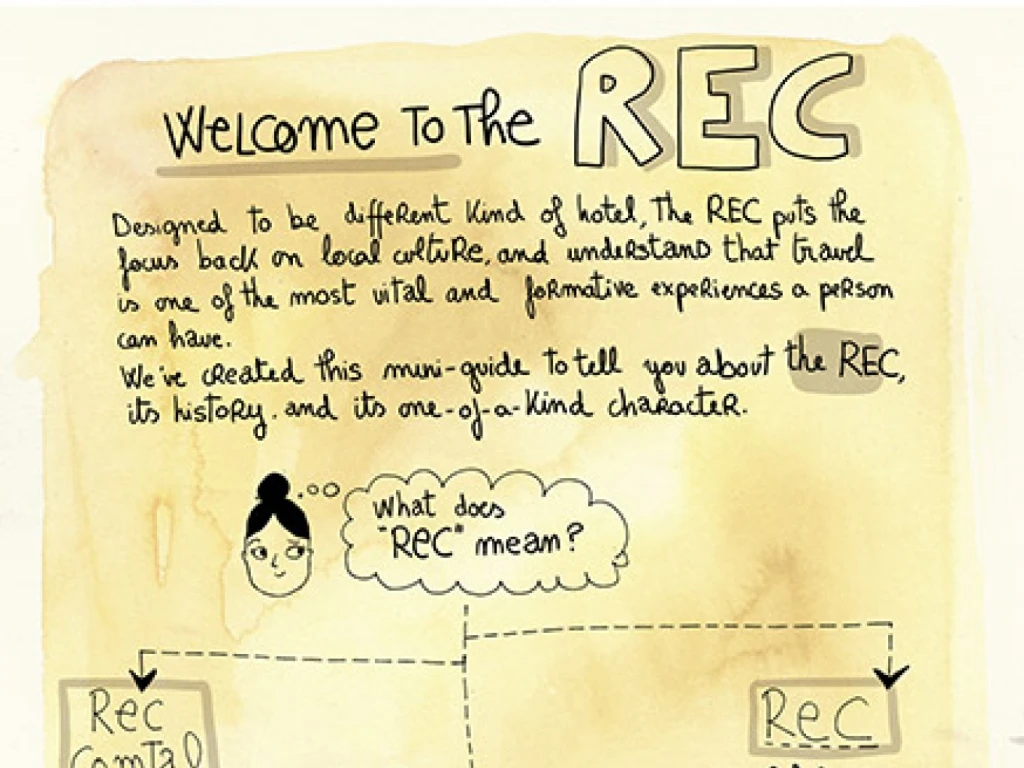 Welcome To The REC
Designed to be different kind of hotel, The REC puts the
focus back on local culture, and understand that travel
is one of the most vital and formative experiences a person
can have.
We've created this mini-guide to tell you about the REC,
its history. and its one-of-a-kind character.
What does
"REC" mean?
Rec
Comtal
Rec